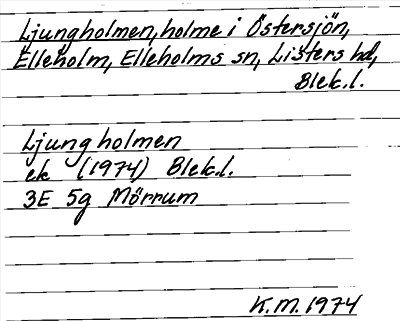 Ljungholmen, holme i Östersjön,
Elleholm, Elleholms sn, Listers hd,
Blek.l.
Ljungholmen
ek (1974) Blek.l.
3E 5g Mörrum
K.M. 1974